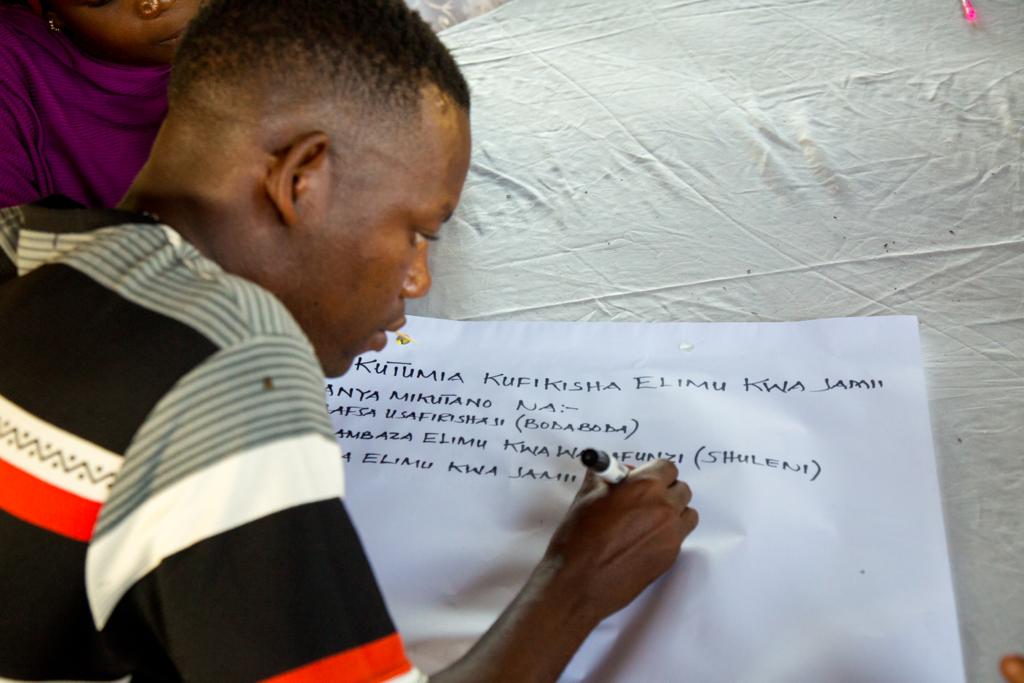 KUTUMIA KUFIKISHA ELIMU KWA JAMII
ANYA MIKUTANO NA:-
AFSA USAFIRISHAJI (BODABODA)
AMBAZA ELIMU KWA (SHULENI)
A ELIMU KWA JAMII